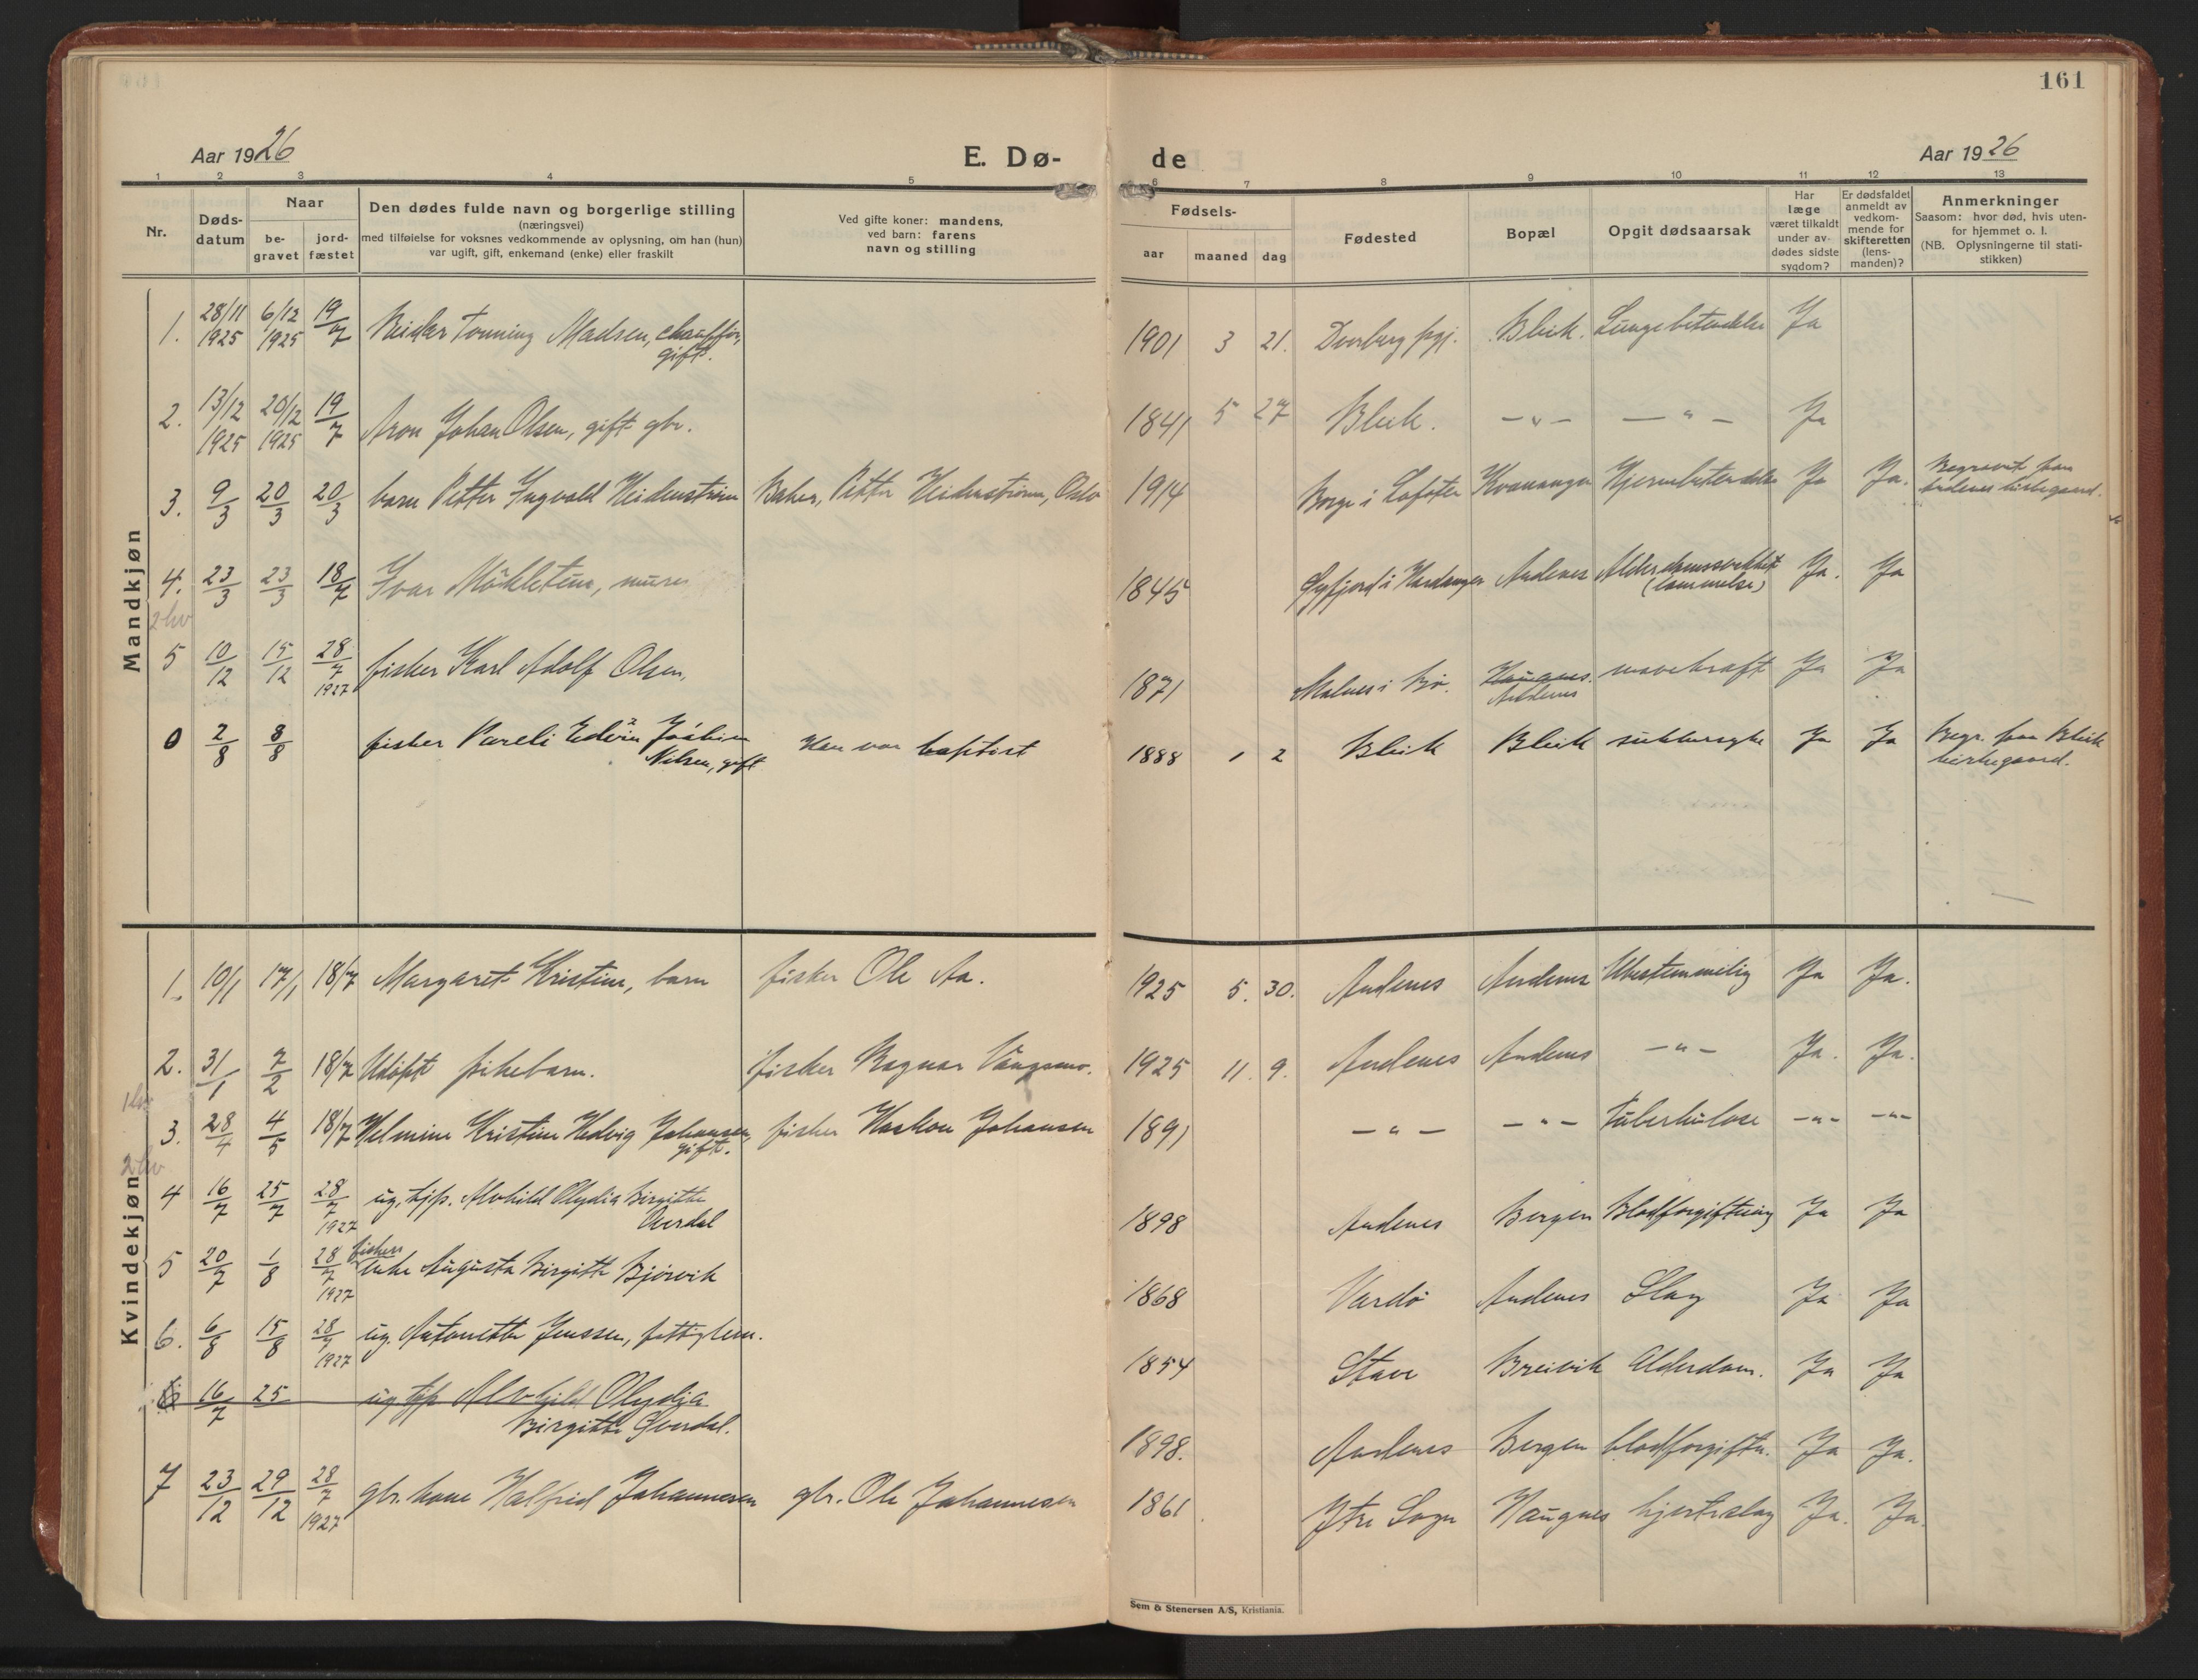 161
Aar 1926
E. Dø-
de
Aar 1926
1 2 3 4 5 6 7 8 9 10 11 12 13
Nr.
Døds-
datum
Naar
be-
gravet
jord-
fæstet
Den dødes fulde navn og borgerlige stilling
(næringsvei)
med tilføielse for voksnes vedkommende av oplysning, om han (hun)
var ugift, gift, enkemand (enke) eller fraskilt
Ved gifte koner: mandens,
ved barn: farens
navn og stilling
Fødsels-
aar
maaned
dag
Fødested
Bopæl
Opgit dødsaarsak
Har
læge
været tilkaldt
under av-
dødes sidste
sygdom?
Er dødsfaldet
anmeldt av
vedkom-
mende for
skifteretten
(lens-
manden)?
Anmerkninger
Saasom: hvor død, hvis uten-
for hjemmet o. l.
(NB. Oplysningerne til stati-
stikken)
Mandkjøn
1. 28/11 1925 6/12 1925 19/7 Tonning Madsen, chauffør, gift. 1901 3 21. Dverberg pgj. Bleik. Lungebetendelse Ja
2. 13/12 1925 20/12 1925 19/7 Aron Johan Olsen, gift gbr. 1841 5 27 Bleik. -"- -"- Ja
3. 9/3 20/3 20/3 barn Petter Ingvald Heidenstrøm Baker, Petter Heidenstrøm, Oslo 1914 Borge i Lofoten Hjernebetendelse Ja Ja. Begravet paa Andenes kirkegaard.
4. 23/3 23/3 18/7 Ivar Mökletun, murer 1845 i Hardanger Andenes Alderdomssvakhet (lammelse) Ja. Ja
2 hv
5 10/12 15/12 28/7 1927 fisker Karl Adolf Olsen. 1871 Malnes i Bø. Haugnes. Andenes mavekræft Ja Ja
0 2/8 8/8 fisker Pareli Edvin Joakim Nilsen, gift Han var baptist 1888 1 2 Bleik Bleik sukkersyke Ja Ja Begr. paa Bleik kirkegaard.
Kvindekjøn
1. 10/1 17/1 18/7 Margaret Kristine, barn fisker Ole Aa. 1925 5. 30. Andenes Andenes Ubestemmelig Ja Ja.
2. 31/1 7/2 18/7 Udöpt pikebarn. fisker Ragnar Vangsmo. 1925 11. 9. Andenes Andenes -"- Ja. Ja.
3. 28/4 4/5 18/7 Helmine Kristine Hedvig Johansen, gift. fisker Haakon Johansen 1891 -"- -"- Tuberkulose -"- -"-
2 hv
4 16/7 25/7 28/7 1927 ug. tjp. Alvhild Olydia Birgitte Överdal 1898 Andenes Bergen Blodforgiftning Ja Ja
5 20/7 1/8 28/7 1927 fisker enke Augusta Birgitte Bjørvik 1868 Vardö Andenes Slag Ja Ja
6. 6/8 15/8 28/7 1927 ug. Antonette Jenssen, fattiglem. 1854 Stave Breivik Alderdom. Ja Ja
6 16/7 25 ug. tjp Alvhild Olydia Birgitte Överdal. 1898. Andenes Bergen blodforgiftn. Ja Ja.
7 23/12 29/12 28/7 1927 gbr. kone Halfrid Johannesen gbr. Ole Johannesen 1861 Ytre Sogn Haugnes hjerteslag Ja. Ja.
Sem & Stenersen A/S, Kristiania.